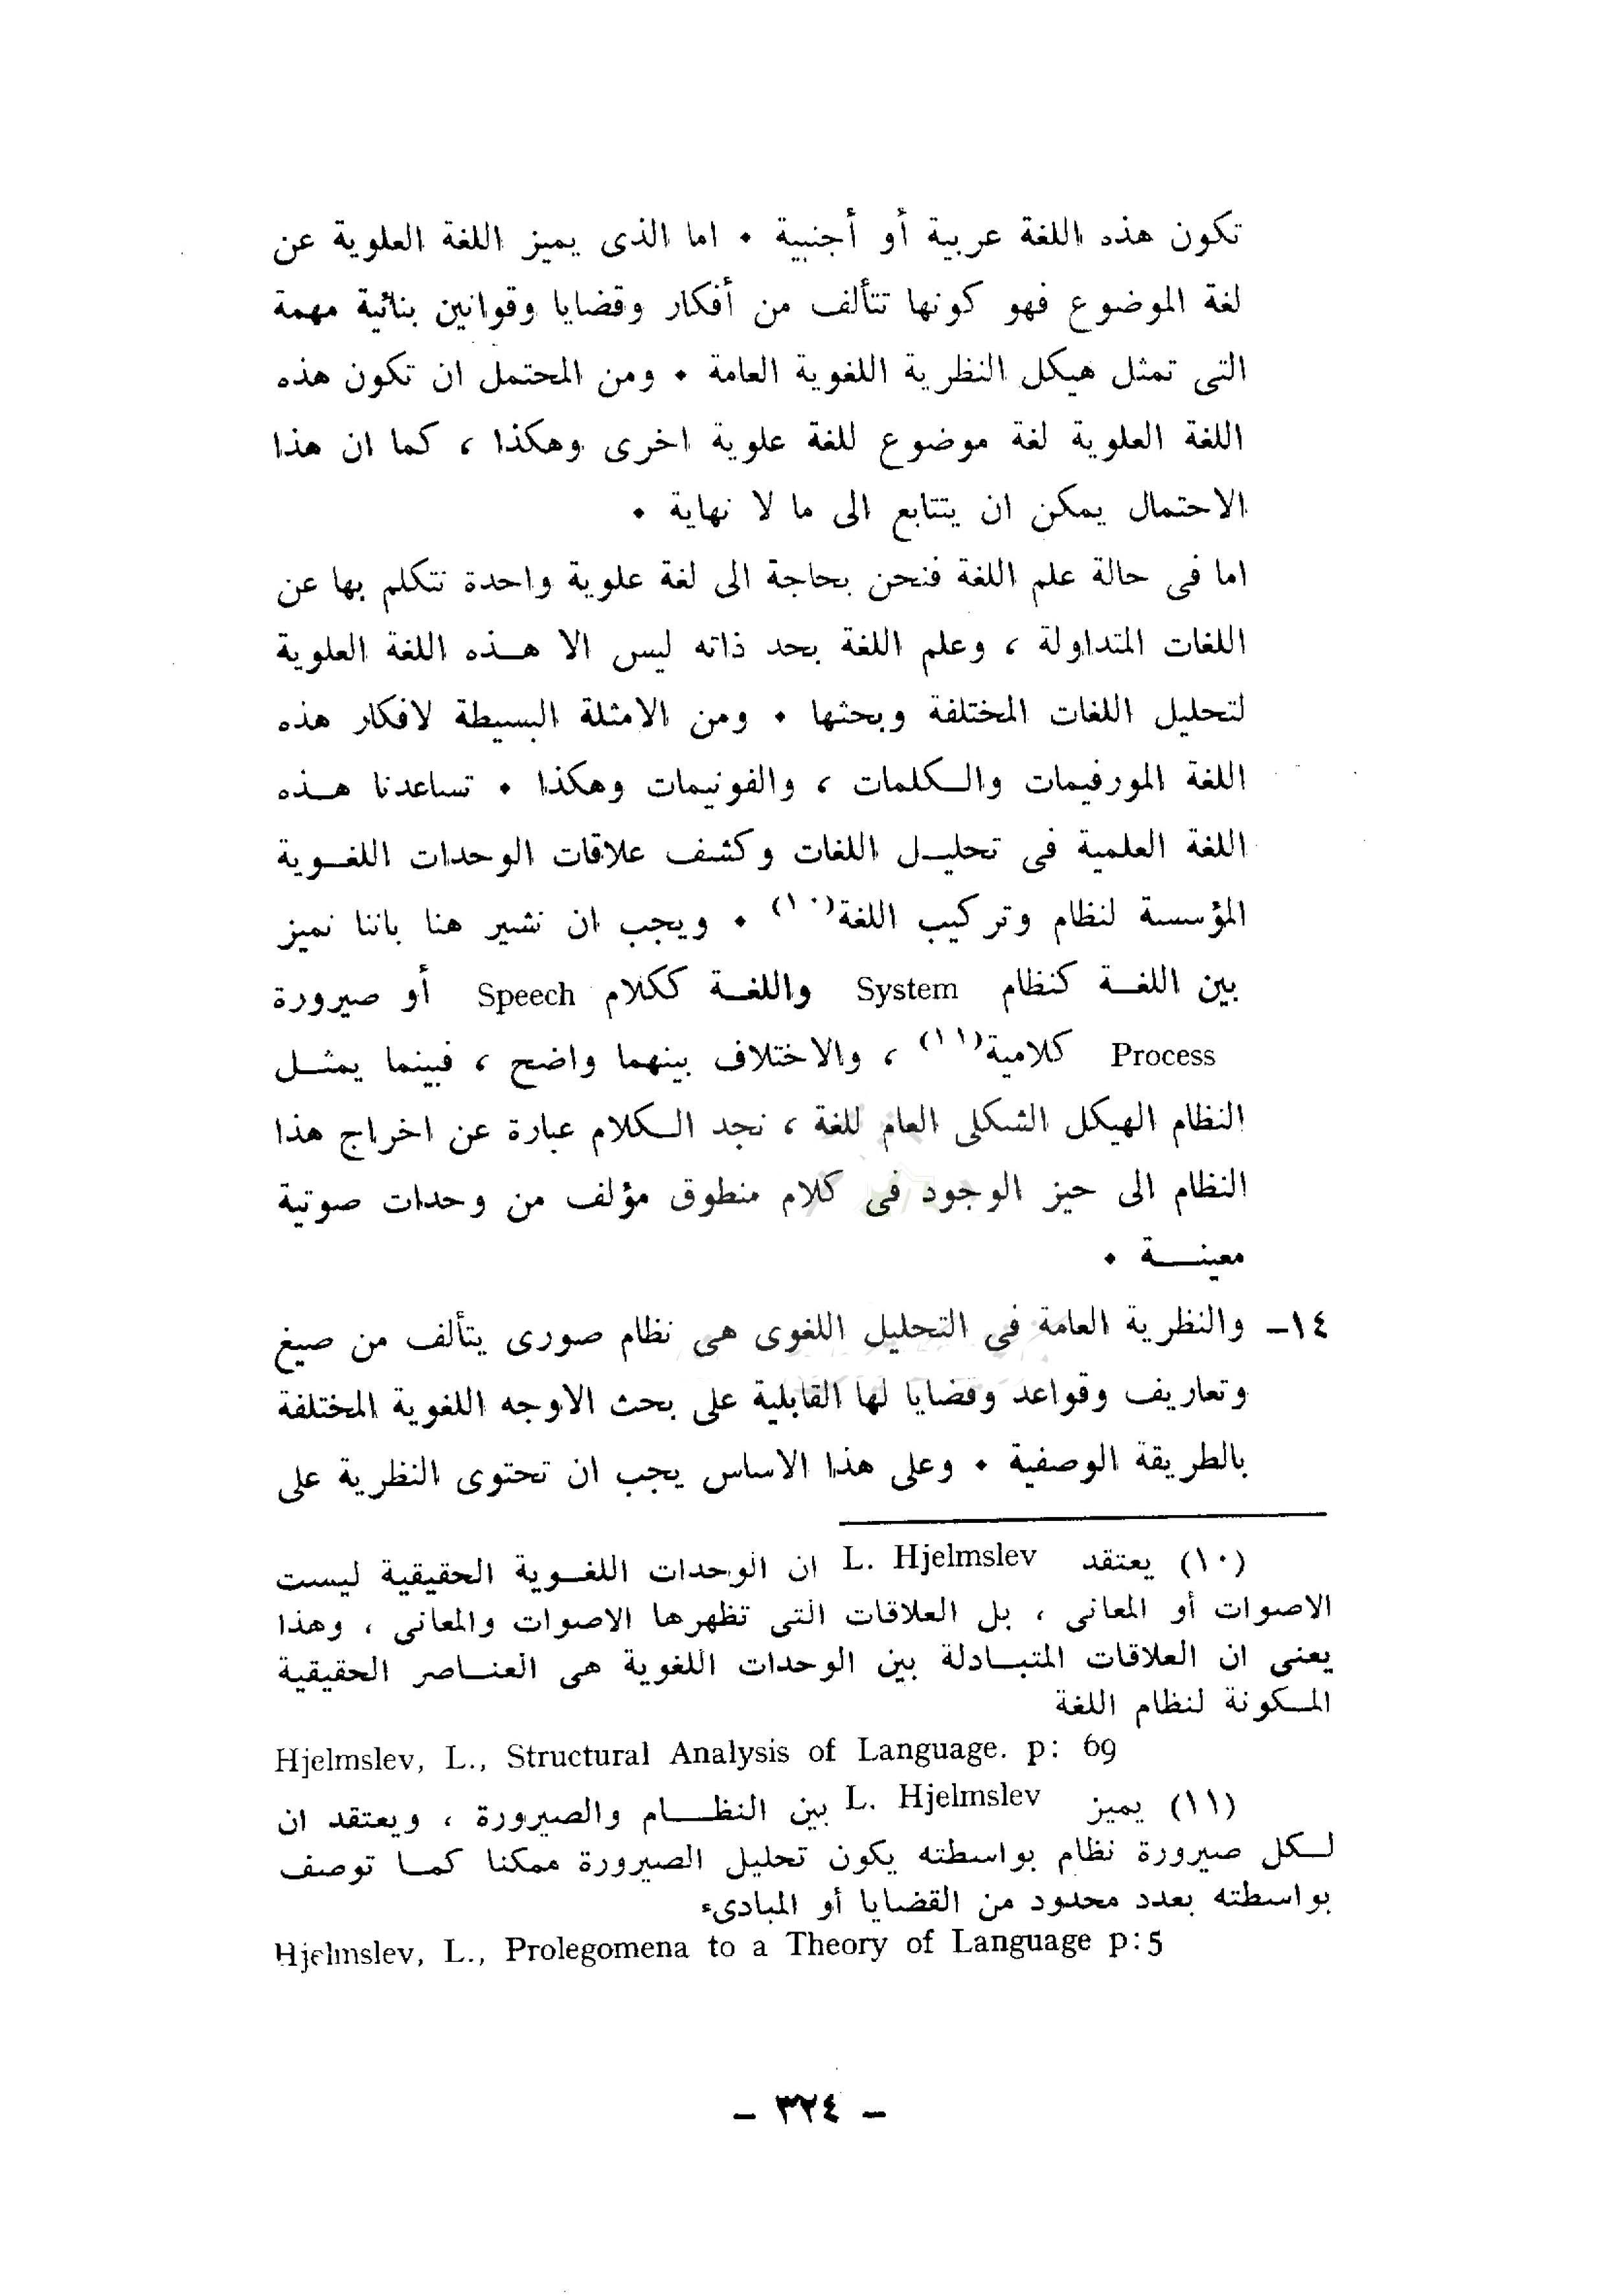 تكون هذه اللغة عربية أو أجنبية . اما الذى يميز اللغة العلوية عن
لغة الموضوع فهو كونها تتألف من أفكار وقضايا وقوانين بنائية مهمة
التى تمثل هيكل النظرية اللغوية العامة . ومن المحتمل ان تكون هذه
اللغة العلوية لغة موضوع للغة علوية اخرى وهكذا ، كما ان هذا
الاحتمال يمكن ان يتتابع الى ما لا نهاية .
اما فى حالة علم اللغة فنحن بحاجة الى لغة علوية واحدة نتكلم بها عن
اللغات المتداولة ، وعلم اللغة بحد ذاته ليس الا هـذه اللغة العلوية
لتحليل اللغات المختلفة وبحثها . ومن الامثلة البسيطة لافكار هذه
اللغة المورفيمات والـكلمات ، والفونيمات وهكذا . تساعدنا هـذه
اللغة العلمية فى تحليـل اللغات وكشف علاقات الوحدات اللغـوية
المؤسسة لنظام وتركيب اللغة(١٠) . ويجب ان نشير هنا باننا نميز
بين اللغـة كنظام System واللغـة ككلام Speech أو صيرورة
Process كلامية(١١) ، والاختلاف بينهما واضح ، فبينما يمثـل
النظام الهيكل الشكلى العام للغة ، نجد الـكلام عبارة عن اخراج هذا
النظام الى حيز الوجود فى كلام منطوق مؤلف من وحدات صوتية
معينـة .
١٤ـ والنظرية العامة فى التحليل اللغوى هى نظام صورى يتألف من صيغ
وتعاريف وقواعد وقضايا لها القابلية على بحث الاوجه اللغوية المختلفة
بالطريقة الوصفية . وعلى هذا الاساس يجب ان تحتوى النظرية على
(١٠) يعتقد L. Hjelmslev ان الوحدات اللغـوية الحقيقية ليست
الاصوات أو المعانى ، بل العلاقات التى تظهرها الاصوات والمعانى ، وهذا
يعنى ان العلاقات المتبـادلة بين الوحدات اللغوية هى العنـاصر الحقيقية
المـكونة لنظام اللغة
Hjelmslev, L., Structural Analysis of Language. p: 69
(١١) يميز L. Hjelmslev بين النظـام والصيرورة ، ويعتقد ان
لـكل صيرورة نظام بواسطته يكون تحليل الصيرورة ممكنا كمـا توصف
بواسطته بعدد محدود من القضايا أو المبادىء
Hjelmslev, L., Prolegomena to a Theory of Language p:5
ـ ٣٢٤ ـ